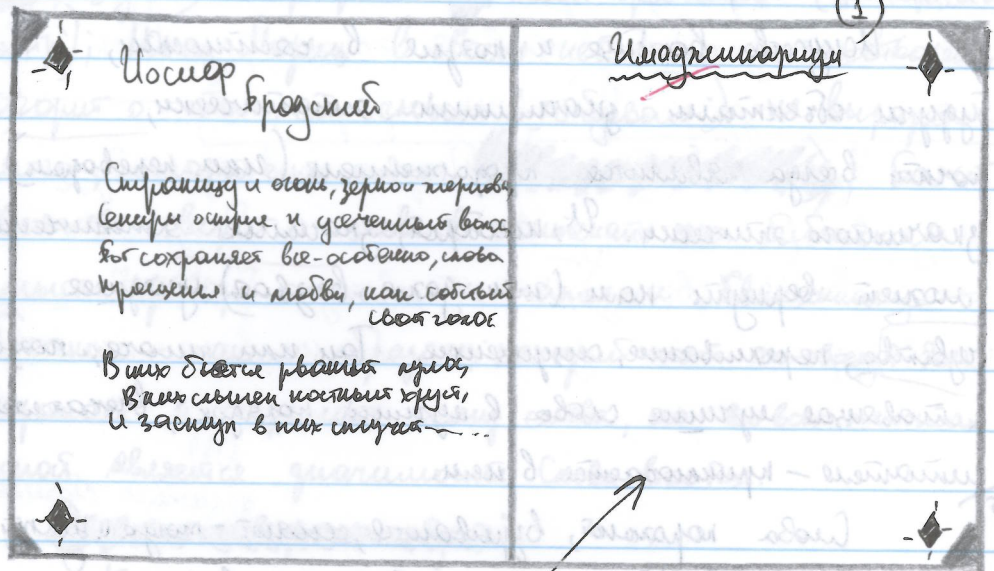 1
Иосиф
Бродский
Страницу и огонь, зерно и жернова,
секиры острие и усеченный волос
Бог сохраняет все - особенно, слова
прощенья и любви, как собственный
свой голос
В них бьется рваный пульс,
В них слышен костный хруст,
и заступ в них стучит ...
Имаджинариум